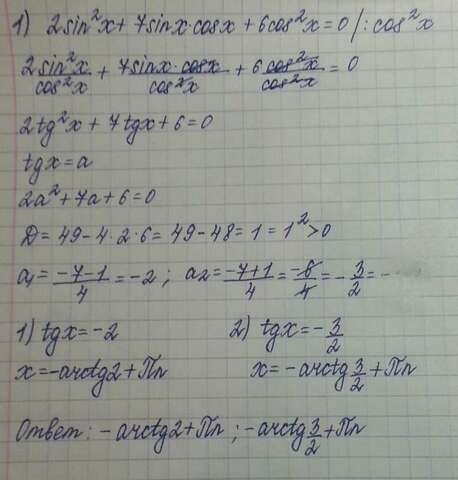 1) 2sin²x + 7sinx·cosx + 6cos²x = 0 /: cos²x
2sin²x/cos²x + 7sinx·cosx/cos²x + 6cos²x/cos²x = 0
2tg²x + 7tgx + 6 = 0
tgx = a
2a² + 7a + 6 = 0
D = 49 - 4·2·6 = 49 - 48 = 1 = 1² > 0
a₁ = (-7-1)/4 = -2; a₂ = (-7+1)/4 = -6/4 = -3/2 = -
1) tgx = -2 2) tgx = -3/2
x = -arctg2 + Пn x = -arctg3/2 + Пn
Ответ: -arctg2 + Пn; -arctg3/2 + Пn